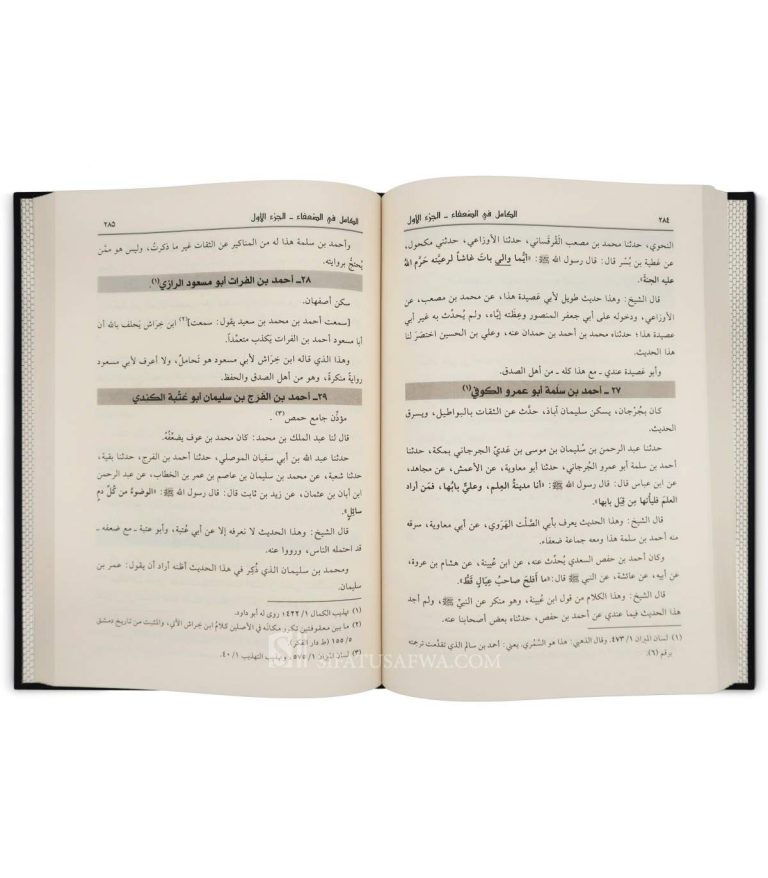 ٢٨٤
الكامل في الضعفاء ـ الجزء الأول
النحوي، حدثنا محمد بن مصعب القُرقُساني، حدثنا الأوزاعي، حدثني مكحول،
عن عطية بن بُسْر قال: قال رسول الله ﷺ: «أيُّما والي باتَ غاشاً لرعيَّته حَرَّم اللهُ
عليه الجنةَ».
قال الشيخ: وهذا حديث طويل لأبي عَصيدة هذا، عن محمد بن مصعب، عن
الأوزاعي، ودخوله على أبي جعفر المنصور وعِظَته إيَّاه، ولم يُحدِّث به غير أبي
عصيدة هذا؛ حدثناه محمد بن أحمد بن حمدان عنه، وعلي بن الحسين اختصَرَ لنا
هذا الحديث.
وأبو عَصيدة عندي ـ مع هذا كله ـ من أهل الصدق.
٢٧ـ أحمد بن سلمة أبو عمرو الكوفي(١)
كان بجُرْجان، يسكن سليمان آباذ، حدَّث عن الثقات بالبواطيل، ويسرق
الحديث.
حدثنا عبد الرحمن بن سُليمان بن موسى بن عَديّ الجرجاني بمكة، حدثنا
أحمد بن سلمة أبو عمرو الجُرجاني، حدثنا أبو معاوية، عن الأعمش، عن مجاهد،
عن ابن عباس قال: قال رسول الله ﷺ: «أنا مدينةُ العِلم، وعليٌّ بابُها، فمَن أراد
العلمَ فليأتها من قِبَل بابها».
قال الشيخ: وهذا الحديث يعرف بأبي الصَّلْت الهَرَوي، عن أبي معاوية، سرقه
منه أحمد بن سلمة هذا ومعه جماعة ضعفاء.
وكان أحمد بن حفص السعدي يُحدِّث عنه، عن ابن عُيينة، عن هشام بن عروة،
عن أبيه، عن عائشة، عن النبي ﷺ قال: «ما أفلحَ صاحبُ عِيالٍ قَطُّ».
قال الشيخ: وهذا الكلام من قول ابن عُيينة، وهو منكر عن النبيِّ ﷺ، ولم أجد
هذا الحديث فيما عندي عن أحمد بن حفص، حدثناه بعض أصحابنا عنه.
(١) لسان الميزان ١/ ٤٧٣. وقال الذهبي: هذا هو السَّمُري. يعني: أحمد بن سالم الذي تقدَّمت ترجمته
برقم (٦).
الكامل في الضعفاء ـ الجزء الأول
٢٨٥
وأحمد بن سلمة هذا له من المناكير عن الثقات غير ما ذكرتُ، وليس هو ممَّن
يُحتجُّ بروايته.
٢٨ـ أحمد بن الفرات أبو مسعود الرازي(١).
سكن أصفهان.
[سمعت أحمد بن محمد بن سعيد يقول: سمعت](٢) ابن خِرَاش يَحلف بالله أن
أبا مسعود أحمد بن الفرات يَكذب متعمِّداً.
وهذا الذي قاله ابن خِرَاش لأبي مسعود هو تَحامل، ولا أعرف لأبي مسعود
روايةً منكرةً، وهو من أهل الصدق والحفظ.
٢٩ـ أحمد بن الفرج بن سليمان أبو عُتْبة الكندي
مؤذِّن جامع حمص(٣).
قال لنا عبد الملك بن محمد: كان محمد بن عوف يضعِّفُه.
حدثنا عبد الله بن أبي سفيان الموصلي، حدثنا أحمد بن الفرج، حدثنا بقية،
حدثنا شعبة، عن محمد بن سليمان بن عاصم بن عمر بن الخطاب، عن عبد الرحمن
ابن أبان بن عثمان، عن زيد بن ثابت قال: قال رسول الله ﷺ: «الوضوءُ من كُلِّ دمٍ
سائلٍ».
قال الشيخ: وهذا الحديث لا نعرفه إلا عن أبي عُتبة، وأبو عتبة ـ مع ضعفه ـ
قد احتمله الناس، ورووا عنه.
ومحمد بن سليمان الذي ذُكِر في هذا الحديث أظنه أراد أن يقول: عمر بن
سليمان.
(١) تهذيب الكمال ١/ ٤٢٢ روى له أبو داود.
(٢) ما بين معقوفتين تكرر مكانه في الأصلين كلامُ ابن خراش الآتي، والمثبت من تاريخ دمشق
٥/ ١٥٥ (ط دار الفكر).
(٣) لسان الميزان ١/ ٥٧٥، وتهذيب التهذيب ١/ ٤٠.
SIFATUSAFWA.COM